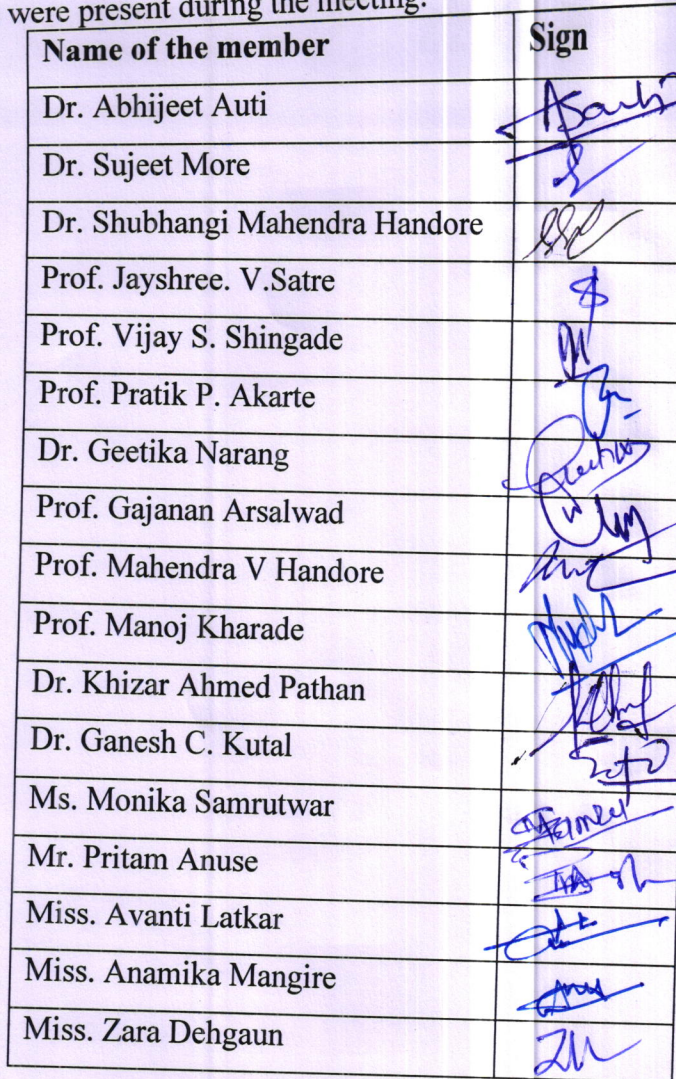 were present during the meeting.
Name of the member Sign
Dr. Abhijeet Auti
Dr. Sujeet More
Dr. Shubhangi Mahendra Handore
Prof. Jayshree. V.Satre
Prof. Vijay S. Shingade
Prof. Pratik P. Akarte
Dr. Geetika Narang
Prof. Gajanan Arsalwad
Prof. Mahendra V Handore
Prof. Manoj Kharade
Dr. Khizar Ahmed Pathan
Dr. Ganesh C. Kutal
Ms. Monika Samrutwar
Mr. Pritam Anuse
Miss. Avanti Latkar
Miss. Anamika Mangire
Miss. Zara Dehgaun